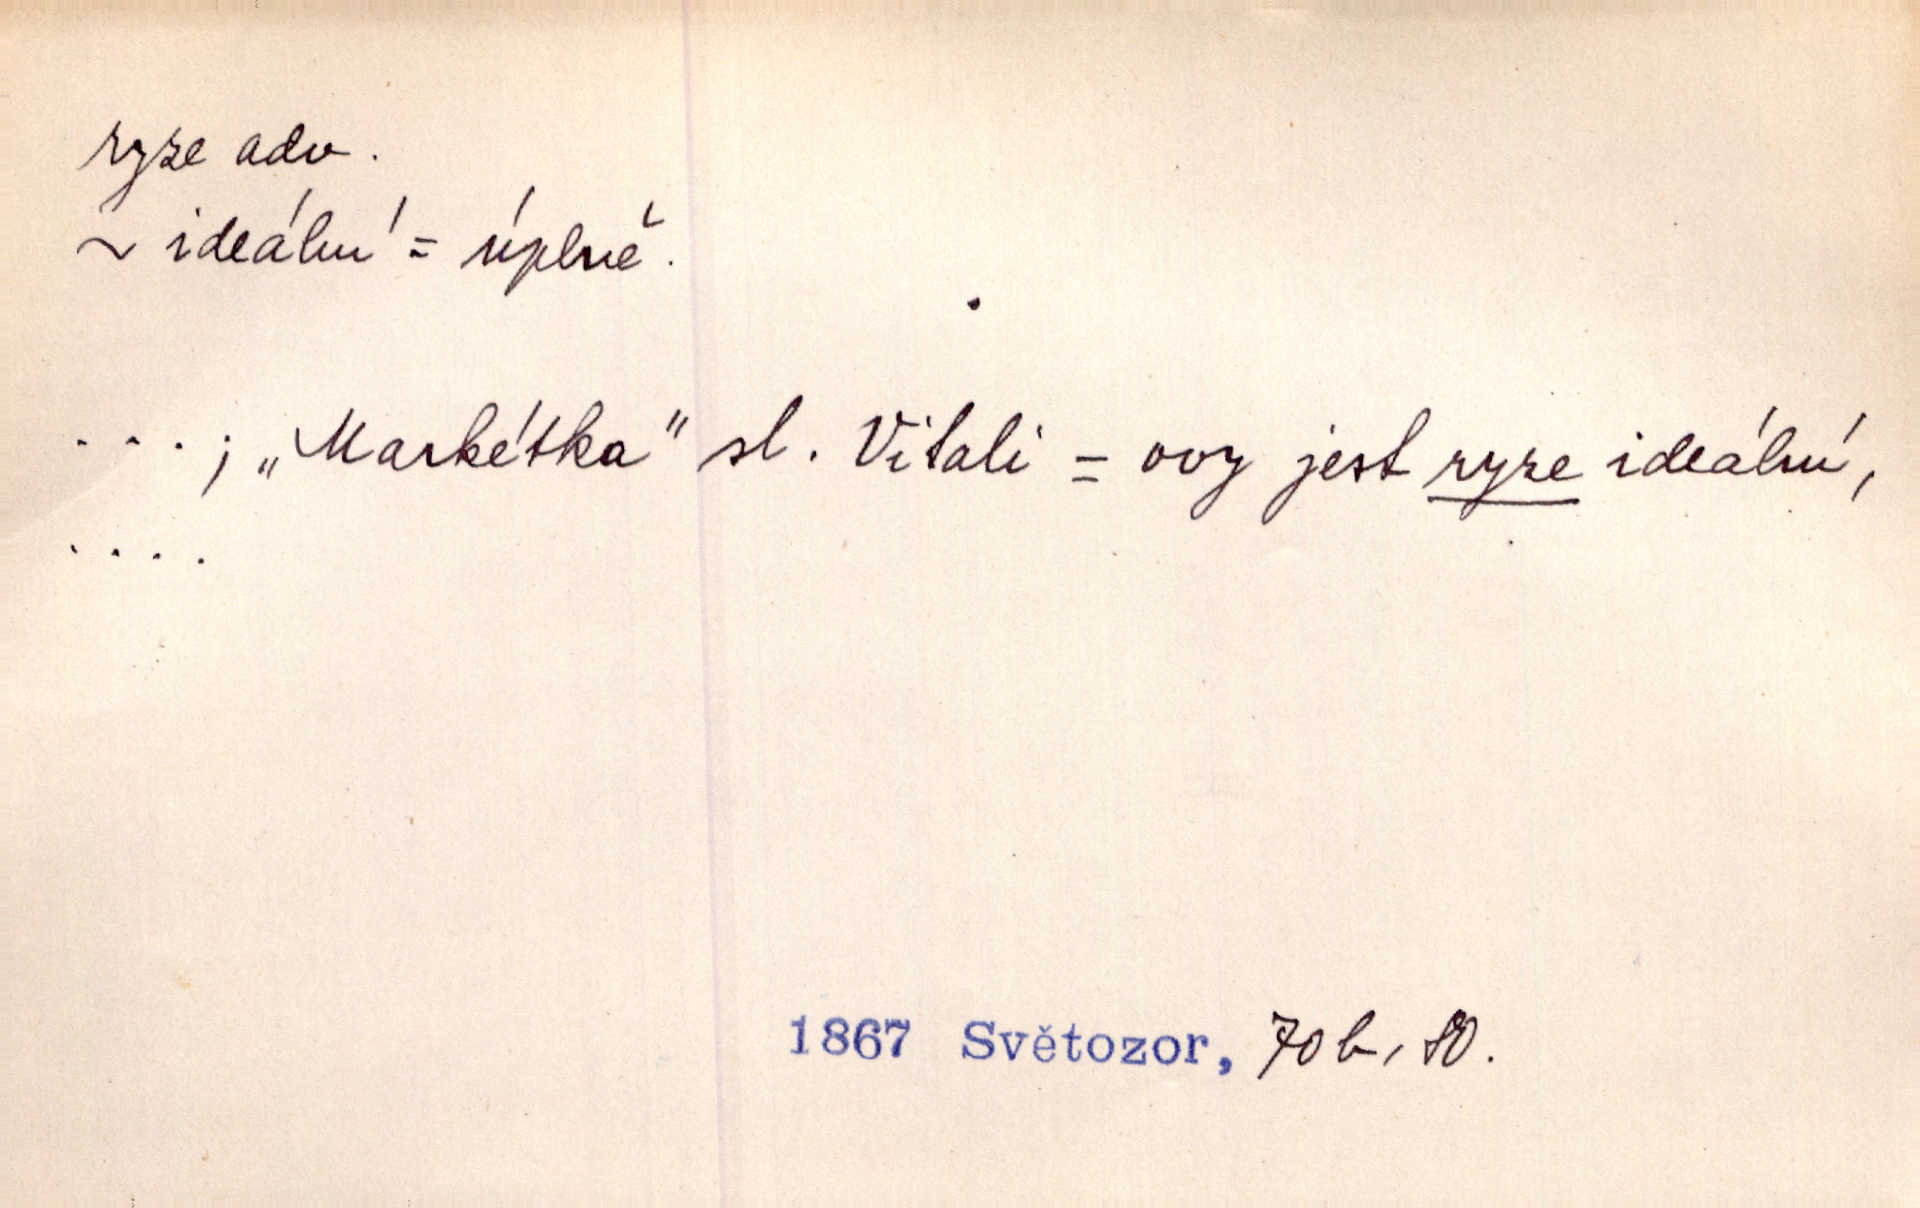 ryze adv.
~ ideální = úplně.
...; „Markétka" sl. Vitali = ovy jest ryze ideální,
....
1867 Světozor, 70b, 80.